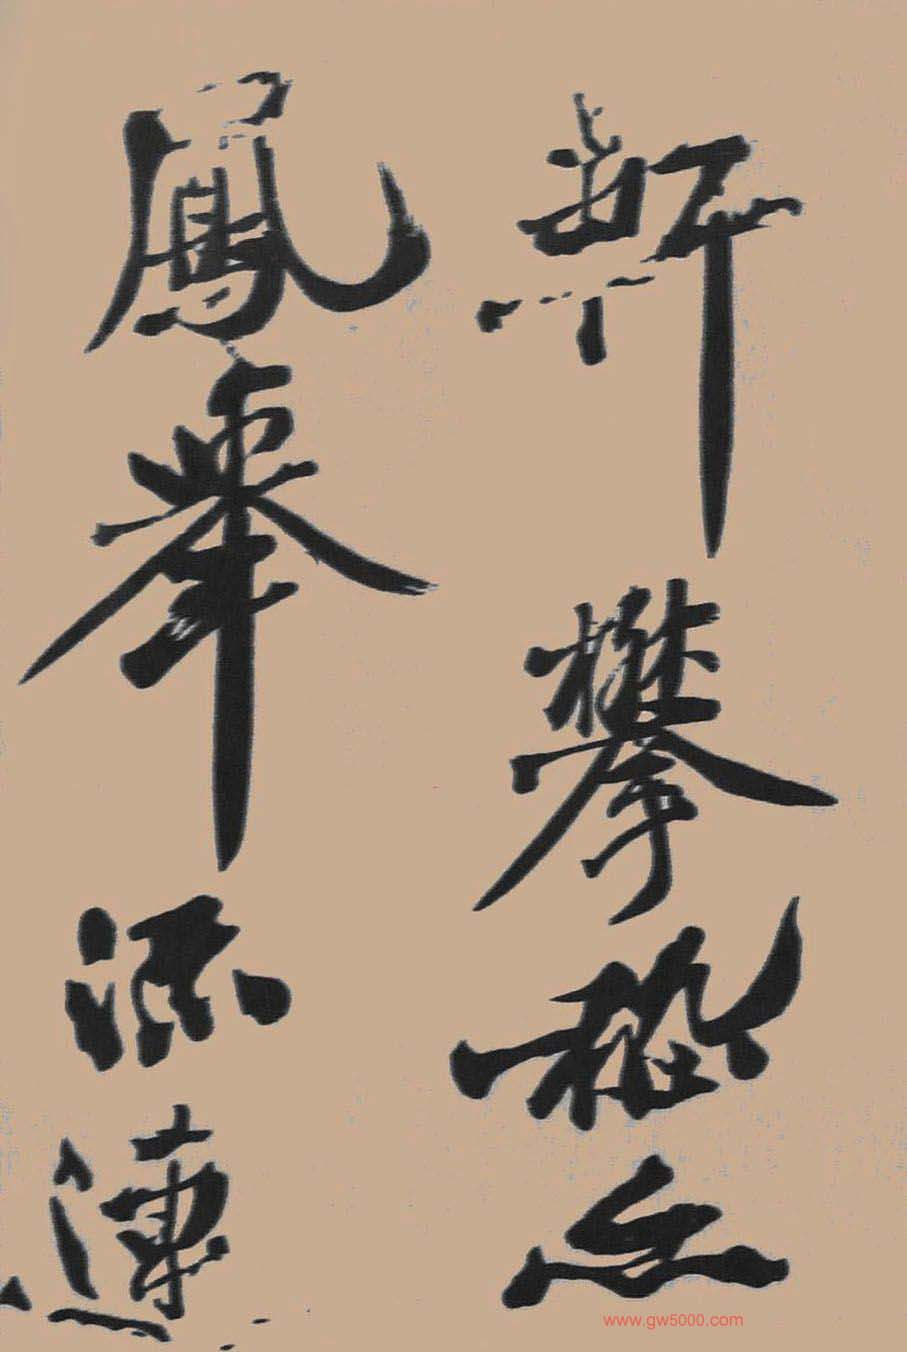 軒攀嵇亦
鳳舉流連
www.gw5000.com